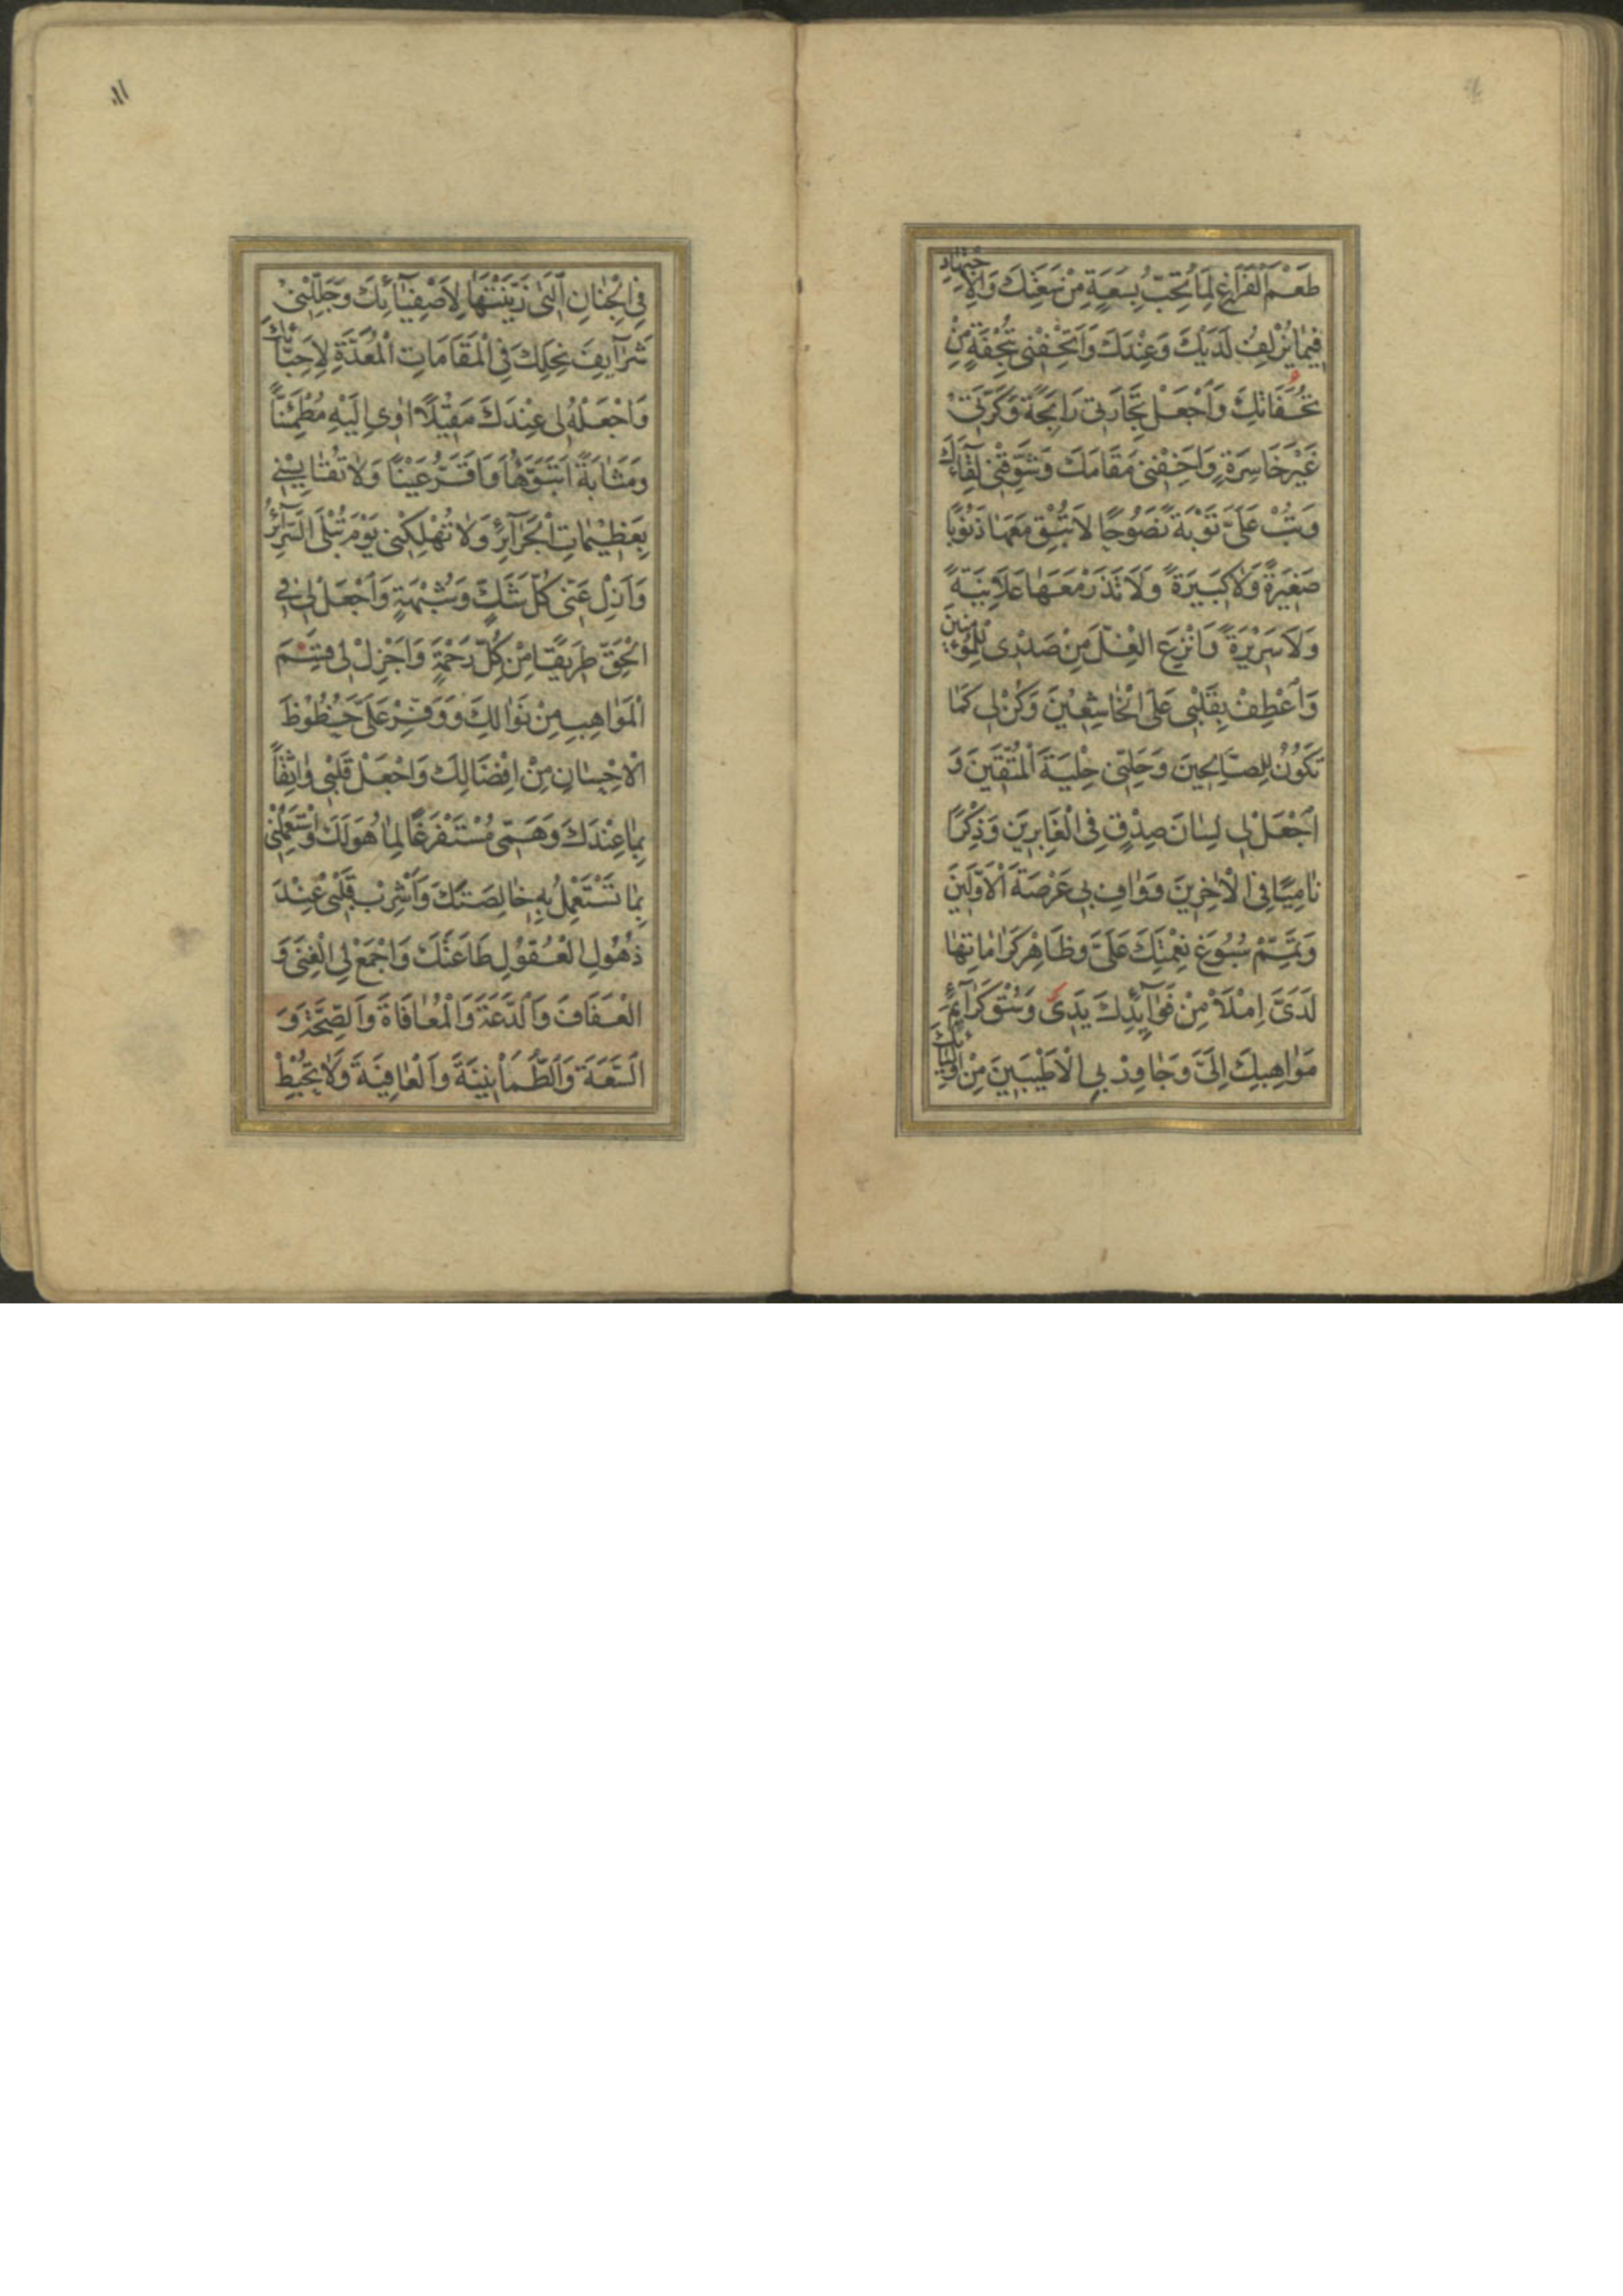 طَعْمَ الْفَرَاغِ لِمَا تُحِبُّ بِسَعَةٍ مِنْ سَعَتِكَ وَالْاِجْتِهَادِ
فِيمَا يُزْلِفُ لَدَيْكَ وَعِنْدَكَ وَاَتْحِفْنِي بِتُحْفَةٍ مِنْ
تُحَفَاتِكَ وَاجْعَلْ تِجَارَتِي رَابِحَةً وَكَرَّتِي
غَيْرَ خَاسِرَةٍ وَاَخِفْنِي مَقَامَكَ وَشَوِّقْنِي لِقَاءَكَ
وَتُبْ عَلَيَّ تَوْبَةً نَصُوحًا لَا تُبْقِ مَعَهَا ذُنُوبًا
صَغِيرَةً وَلَا كَبِيرَةً وَلَا تَذَرْ مَعَهَا عَلَانِيَةً
وَلَا سَرِيرَةً وَانْزِعِ الْغِلَّ مِنْ صَدْرِي لِلْمُؤْمِنِينَ
وَاعْطِفْ بِقَلْبِي عَلَى الْخَاشِعِينَ وَكُنْ لِي كَمَا
تَكُونُ لِلصَّالِحِينَ وَحَلِّنِي حِلْيَةَ الْمُتَّقِينَ وَ
اجْعَلْ لِي لِسَانَ صِدْقٍ فِي الْغَابِرِينَ وَذِكْرًا
نَامِيًا فِي الْاٰخِرِينَ وَوَافِ بِي عَرْصَةَ الْاَوَّلِينَ
وَتَمِّمْ سُبُوغَ نِعْمَتِكَ عَلَيَّ وَظَاهِرْ كَرَامَاتِهَا
لَدَيَّ اِمْلَأْ مِنْ فَوَآئِدِكَ يَدَيَّ وَسُقْ كَرَآئِمَ
مَوَاهِبِكَ اِلَيَّ وَجَاوِرْ بِي الْاَطْيَبِينَ مِنْ اَوْلِيَآئِكَ
١١
فِي الْجِنَانِ الَّتِي زَيَّنْتَهَا لِاَصْفِيَآئِكَ وَجَلِّلْنِي
شَرَآيِفَ نِحَلِكَ فِي الْمَقَامَاتِ الْمُعَدَّةِ لِاَحِبَّائِكَ
وَاجْعَلْ لِي عِنْدَكَ مَقِيلًا اٰوِي اِلَيْهِ مُطْمَئِنًّا
وَمَثَابَةً اَتَبَوَّؤُهَا وَاَقَرُّ عَيْنًا وَلَا تُقَايِسْنِي
بِعَظِيمَاتِ الْجَرَآئِرِ وَلَا تُهْلِكْنِي يَوْمَ تُبْلَى السَّرَآئِرُ
وَاَزِلْ عَنِّي كُلَّ شَكٍّ وَشُبْهَةٍ وَاجْعَلْ لِي فِي
الْحَقِّ طَرِيقًا مِنْ كُلِّ رَحْمَةٍ وَاَجْزِلْ لِي قِسَمَ
الْمَوَاهِبِ مِنْ نَوَالِكَ وَوَفِّرْ عَلَيَّ حُظُوظَ
الْاِحْسَانِ مِنْ اِفْضَالِكَ وَاجْعَلْ قَلْبِي وَاثِقًا
بِمَا عِنْدَكَ وَهَمِّي مُسْتَفْرَغًا لِمَا هُوَ لَكَ وَاسْتَعْمِلْنِي
بِمَا تَسْتَعْمِلُ بِهِ خَالِصَتَكَ وَاَشْرِبْ قَلْبِي عِنْدَ
ذُهُولِ الْعُقُولِ طَاعَتَكَ وَاجْمَعْ لِي الْغِنَى وَ
الْعَفَافَ وَالدَّعَةَ وَالْمُعَافَاةَ وَالصِّحَّةَ وَ
السَّعَةَ وَالطُّمَأْنِينَةَ وَالْعَافِيَةَ وَلَا تُحْبِطْ